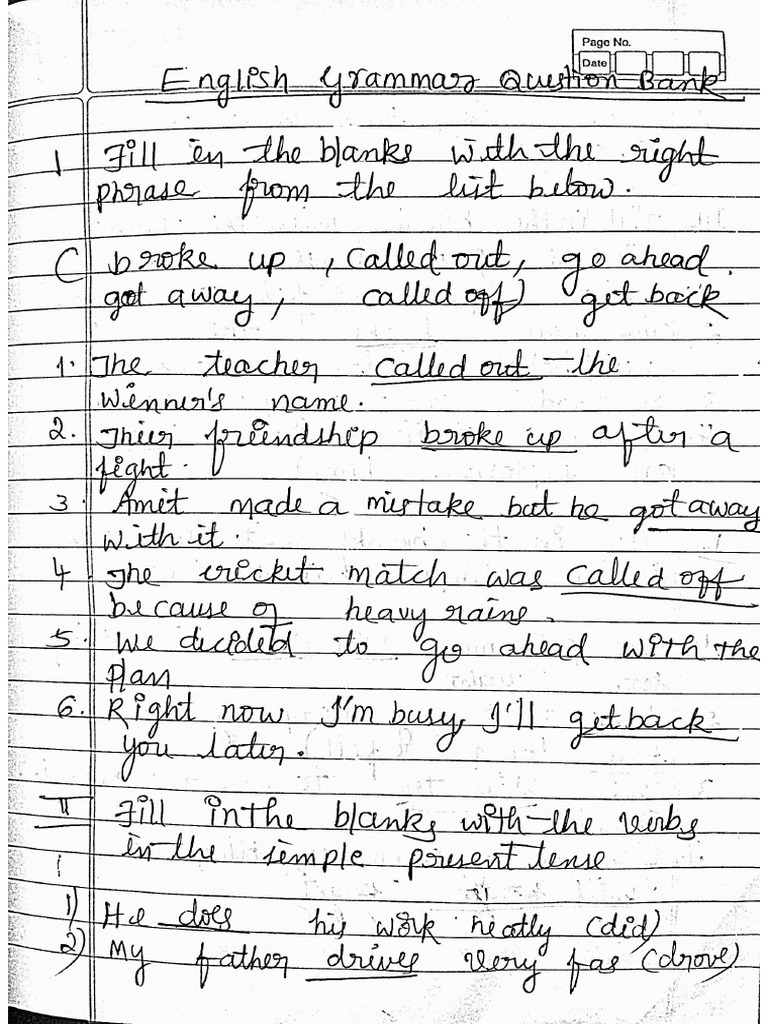 Page No.
Date
English Grammar Question Bank
1 Fill in the blanks with the right
phrase from the list below.
C broke up, called out, go ahead.
got away, called off) get back
1. The teacher called out the
Winner's name.
2. Thier friendship broke up after a
fight.
3. Amit made a mistake but he got away
with it.
4 The cricket match was called off
because of heavy rains.
5. We decided to go ahead with the
Plan
6. Right now I'm busy, I'll get back
you later.
II Fill in the blanks with the verbs
in the simple present tense
1) He does his work neatly (did)
2) My father drives very fas (drove)